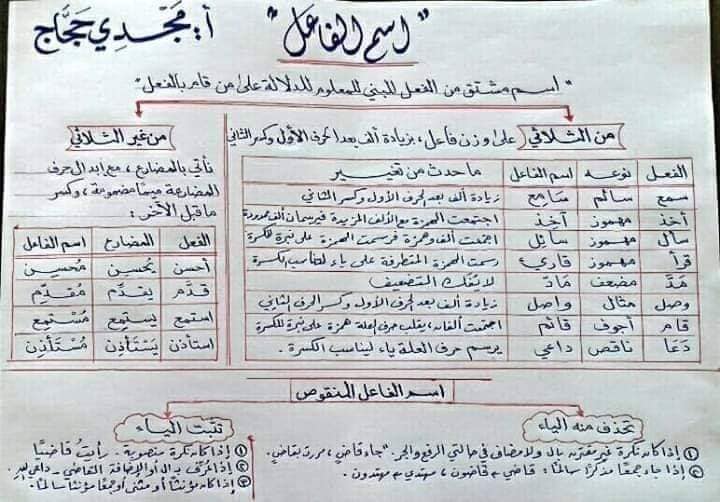 "اسم الفاعل"
أ. مجدي حجاج
"اسم مشتق من الفعل المبني للمعلوم للدلالة على من قام بالفعل"
من الثلاثي
على وزن فاعل، بزيادة ألف بعد الحرف الأول وكسر الثاني
الفعل نوعه اسم الفاعل ما حدث من تغيير
سمع سالم سَامِع زيادة ألف بعد الحرف الأول وكسر الثاني
أخذ مهموز آخِذ اجتمعت الهمزة مع الألف المزيدة فيرسمان ألف ممدودة
سأل مهموز سائِل اجتمعت ألف وهمزة فرسمت الهمزة على نبرة للكسرة
قرأ مهموز قارِئ رسمت الهمزة المتطرفة على ياء لتناسب الكسرة
مَدَّ مضعف مَادّ لا يُفك التضعيف
وصل مثال واصل زيادة ألف بعد الحرف الأول وكسر الحرف الثاني
قام أجوف قائم اجتمعت ألفان، يقلب حرف العلة همزة على نبرة للكسرة
دَعَا ناقص داعي يرسم حرف العلة ياء ليناسب الكسرة.
من غير الثلاثي
نأتي بالمضارع، مع إبدال حرف
المضارعة ميمًا مضمومة، وكسر
ما قبل الآخر:
الفعل المضارع اسم الفاعل
أحسن يُحسِن مُحسِن
قدَّم يقدِّم مُقدِّم
استمع يستمِع مُسْتَمِع
استأذن يَسْتَأذِن مُسْتَأْذِن
اسم الفاعل المنقوص
تحذف منه الياء
① إذا كان نكرة غير مقترن بال ولا مضاف في حالتي الرفع والجر. "جاء قاضٍ، مررت بقاضٍ.
② إذا جاء جمعًا مذكرًا سالمًا: قاضي ← قاضون، مهتدي ← مهتدون.
تثبت الياء
① إذا كان نكرة منصوبة. رأيتُ قاضيًا
② إذا عُرِّف بـ ال أو الإضافة القاضي - داعي
③ إذا كان مؤنثًا أو مثنى أو جمعًا مؤنثًا سالمًا.